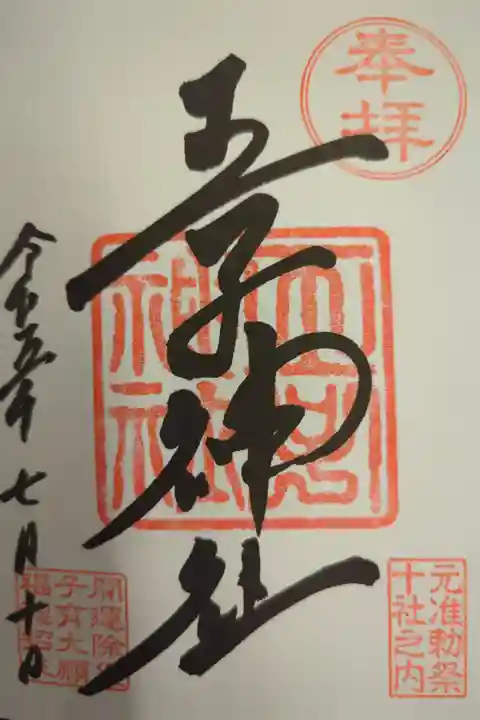 奉拝
王子神社
王子神社
元准勅祭
十社之内
令和五年七月十日
開運除
子育大願
福招